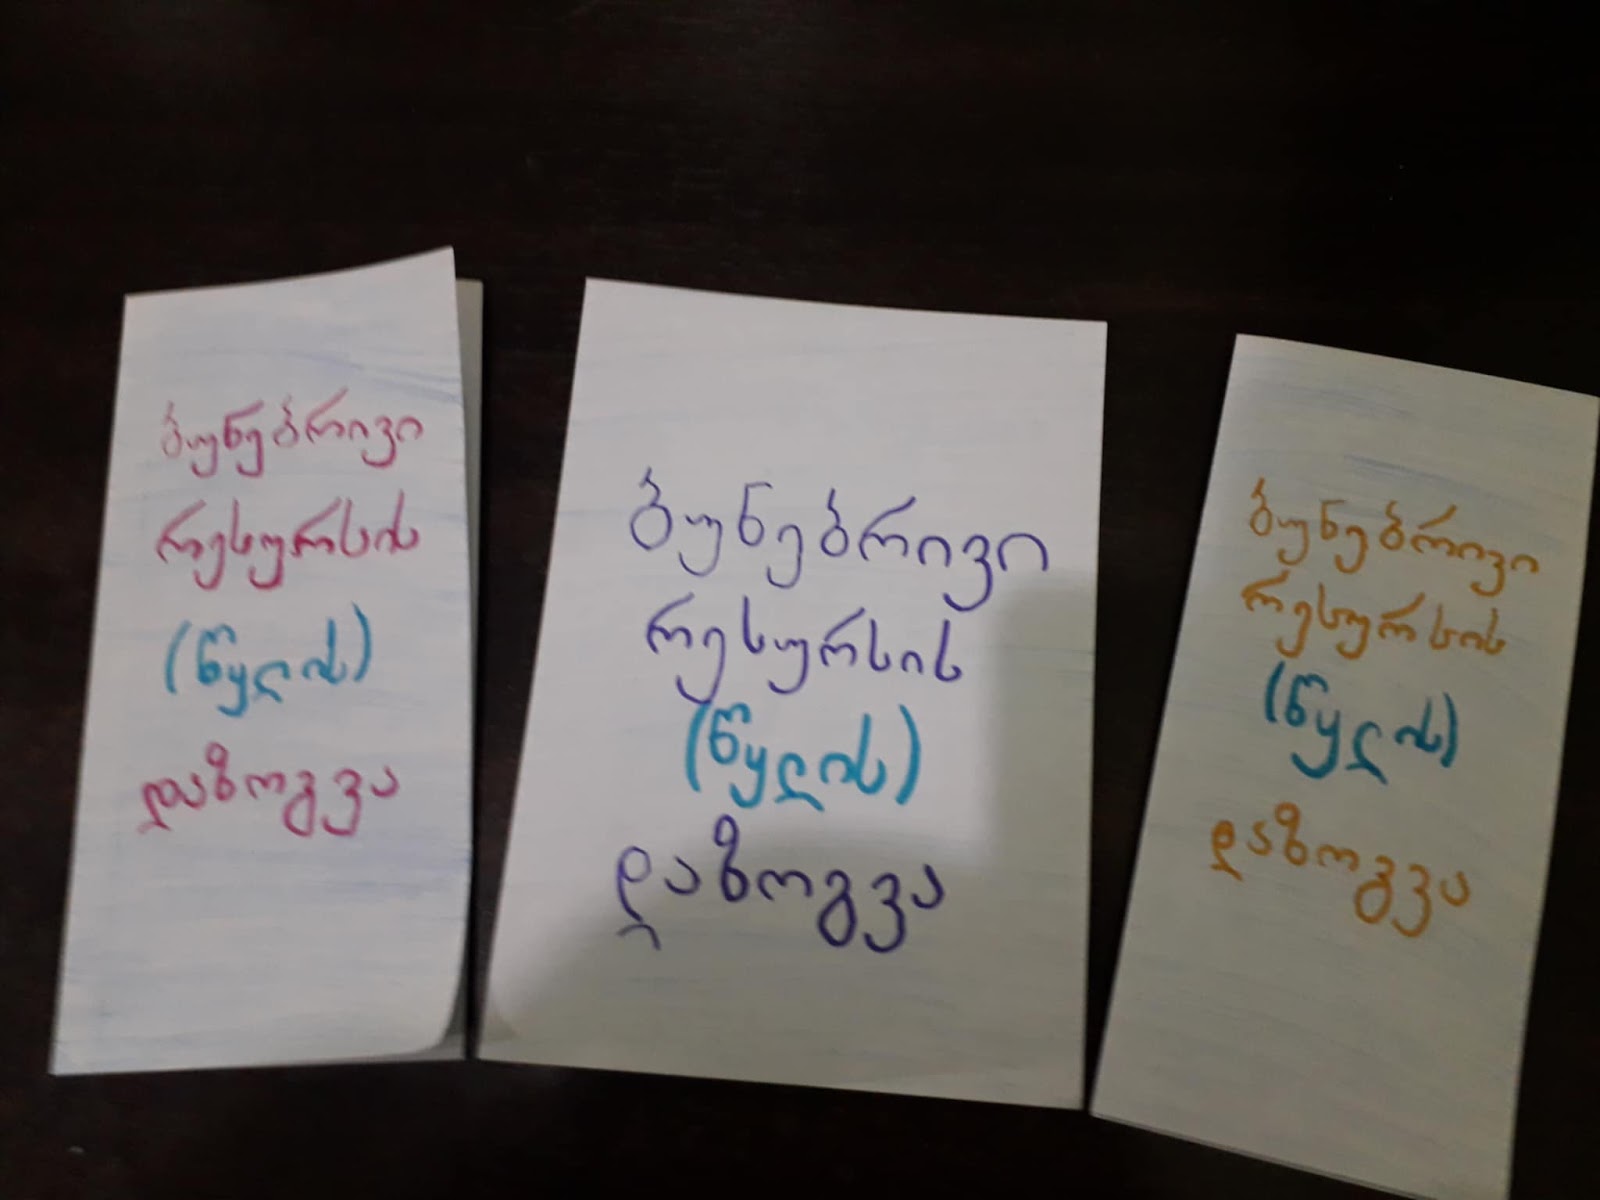 ბუნებრივი
რესურსის
(წყლის)
დაზოგვა
ბუნებრივი
რესურსის
(წყლის)
დაზოგვა
ბუნებრივი
რესურსის
(წყლის)
დაზოგვა